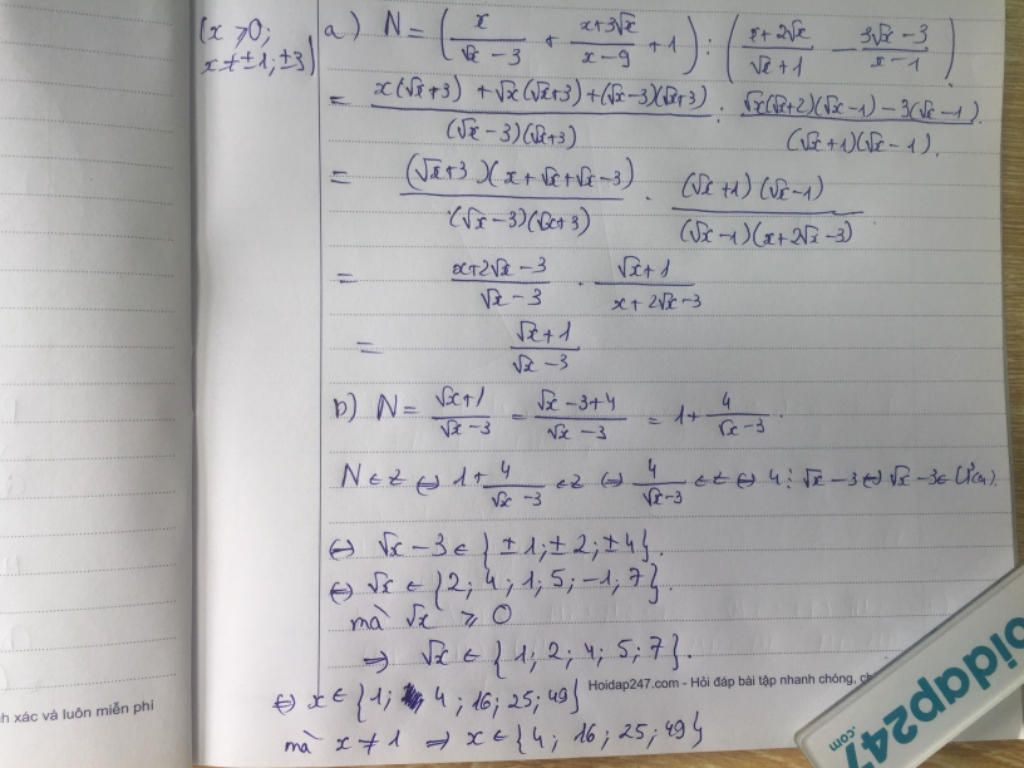 (x ⩾ 0;
x ≠ ±1; ±3)
a) N = (x/(√x - 3) + (x+3√x)/(x-9) + 1) : ((x+2√x)/(√x+1) - (3√x-3)/(x-1)).
= (x(√x+3) + √x(√x+3) + (√x-3)(√x+3))/((√x-3)(√x+3)) : (√x(√x+2)(√x-1) - 3(√x-1))/((√x+1)(√x-1)).
= ((√x+3)(x+√x+√x-3))/((√x-3)(√x+3)) . ((√x+1)(√x-1))/((√x-1)(x+2√x-3))
= (x+2√x-3)/(√x-3) . (√x+1)/(x+2√x-3)
= (√x+1)/(√x-3)
b) N = (√x+1)/(√x-3) = (√x-3+4)/(√x-3) = 1+ 4/(√x-3).
N ∈ Z ⇔ 1+ 4/(√x-3) ∈ Z ⇔ 4/(√x-3) ∈ Z ⇔ 4 ⋮ √x-3 ⇔ √x-3 ∈ Ư(4).
⇔ √x - 3 ∈ {±1; ±2; ±4}.
⇔ √x ∈ {2; 4; 1; 5; -1; 7}.
mà √x ⩾ 0
⇒ √x ∈ {1; 2; 4; 5; 7}.
⇔ x ∈ {1; 4; 16; 25; 49}
mà x ≠ 1 ⇒ x ∈ {4; 16; 25; 49}
Hoidap247.com - Hỏi đáp bài tập nhanh chóng, ch
h xác và luôn miễn phí
oidap247
.com